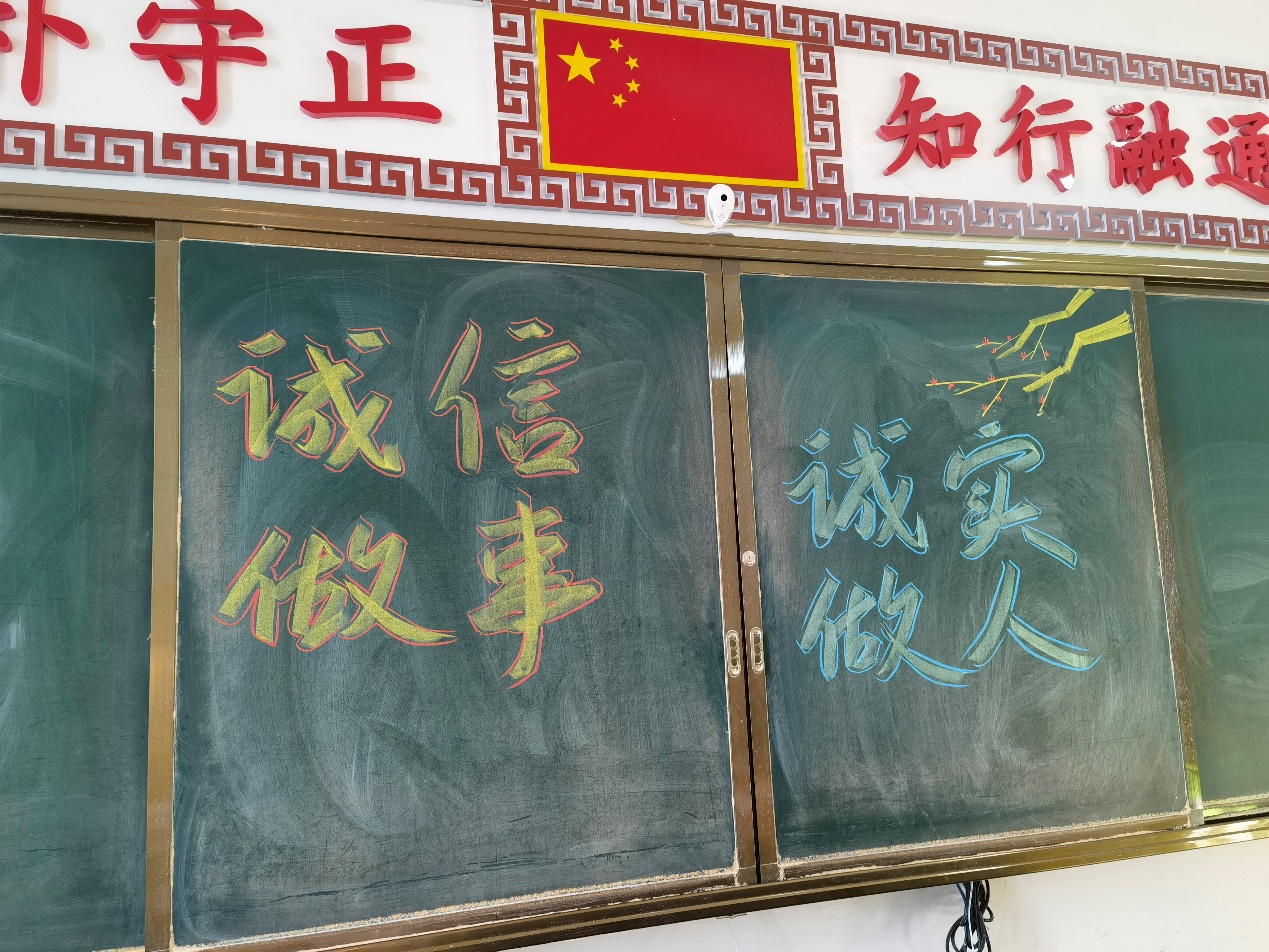 守正
知行融通
诚信
做事
诚实
做人